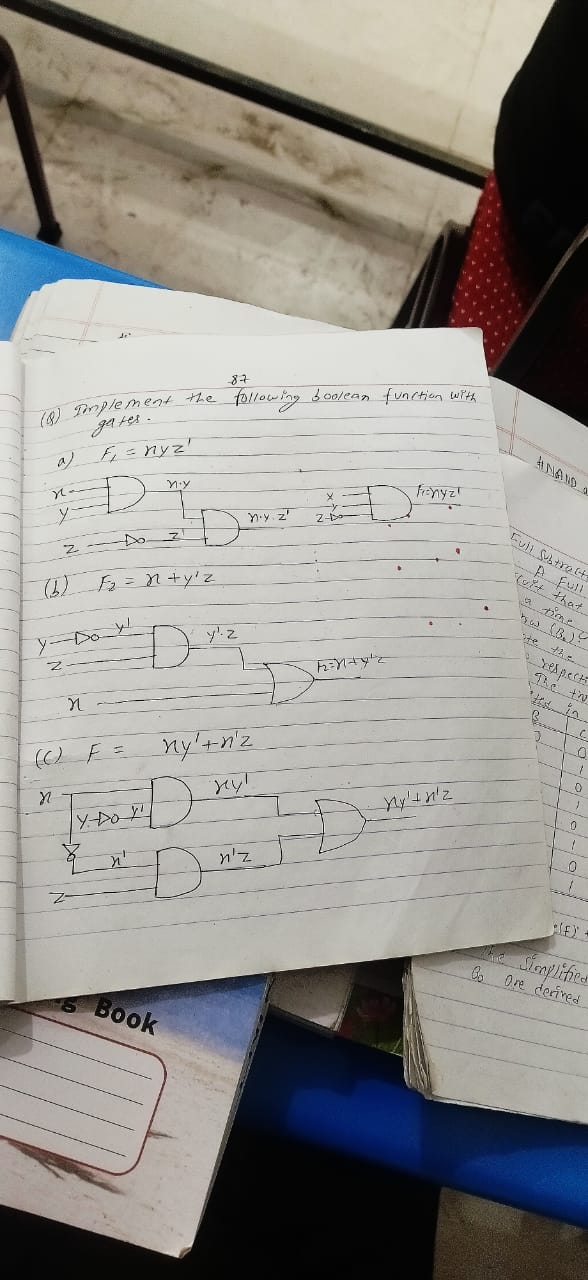 87
(Q) Implement the following boolean function with
gates.
a) F₁ = xyz'
x
x·y
y
z
z'
x·y·z'
x
y
z
F₁=xyz'
(b) F₂ = x + y'z
y
y'
z
y'·z
x
F₂=x+y'z
(c) F = xy'+x'z
x
xy'
y
y'
xy'+x'z
x'
x'z
z
Book
Full Subtract
A Full
that
a time
the
respect
The
in
0
1
0
1
0
1
0
1
The Simplified
are derived